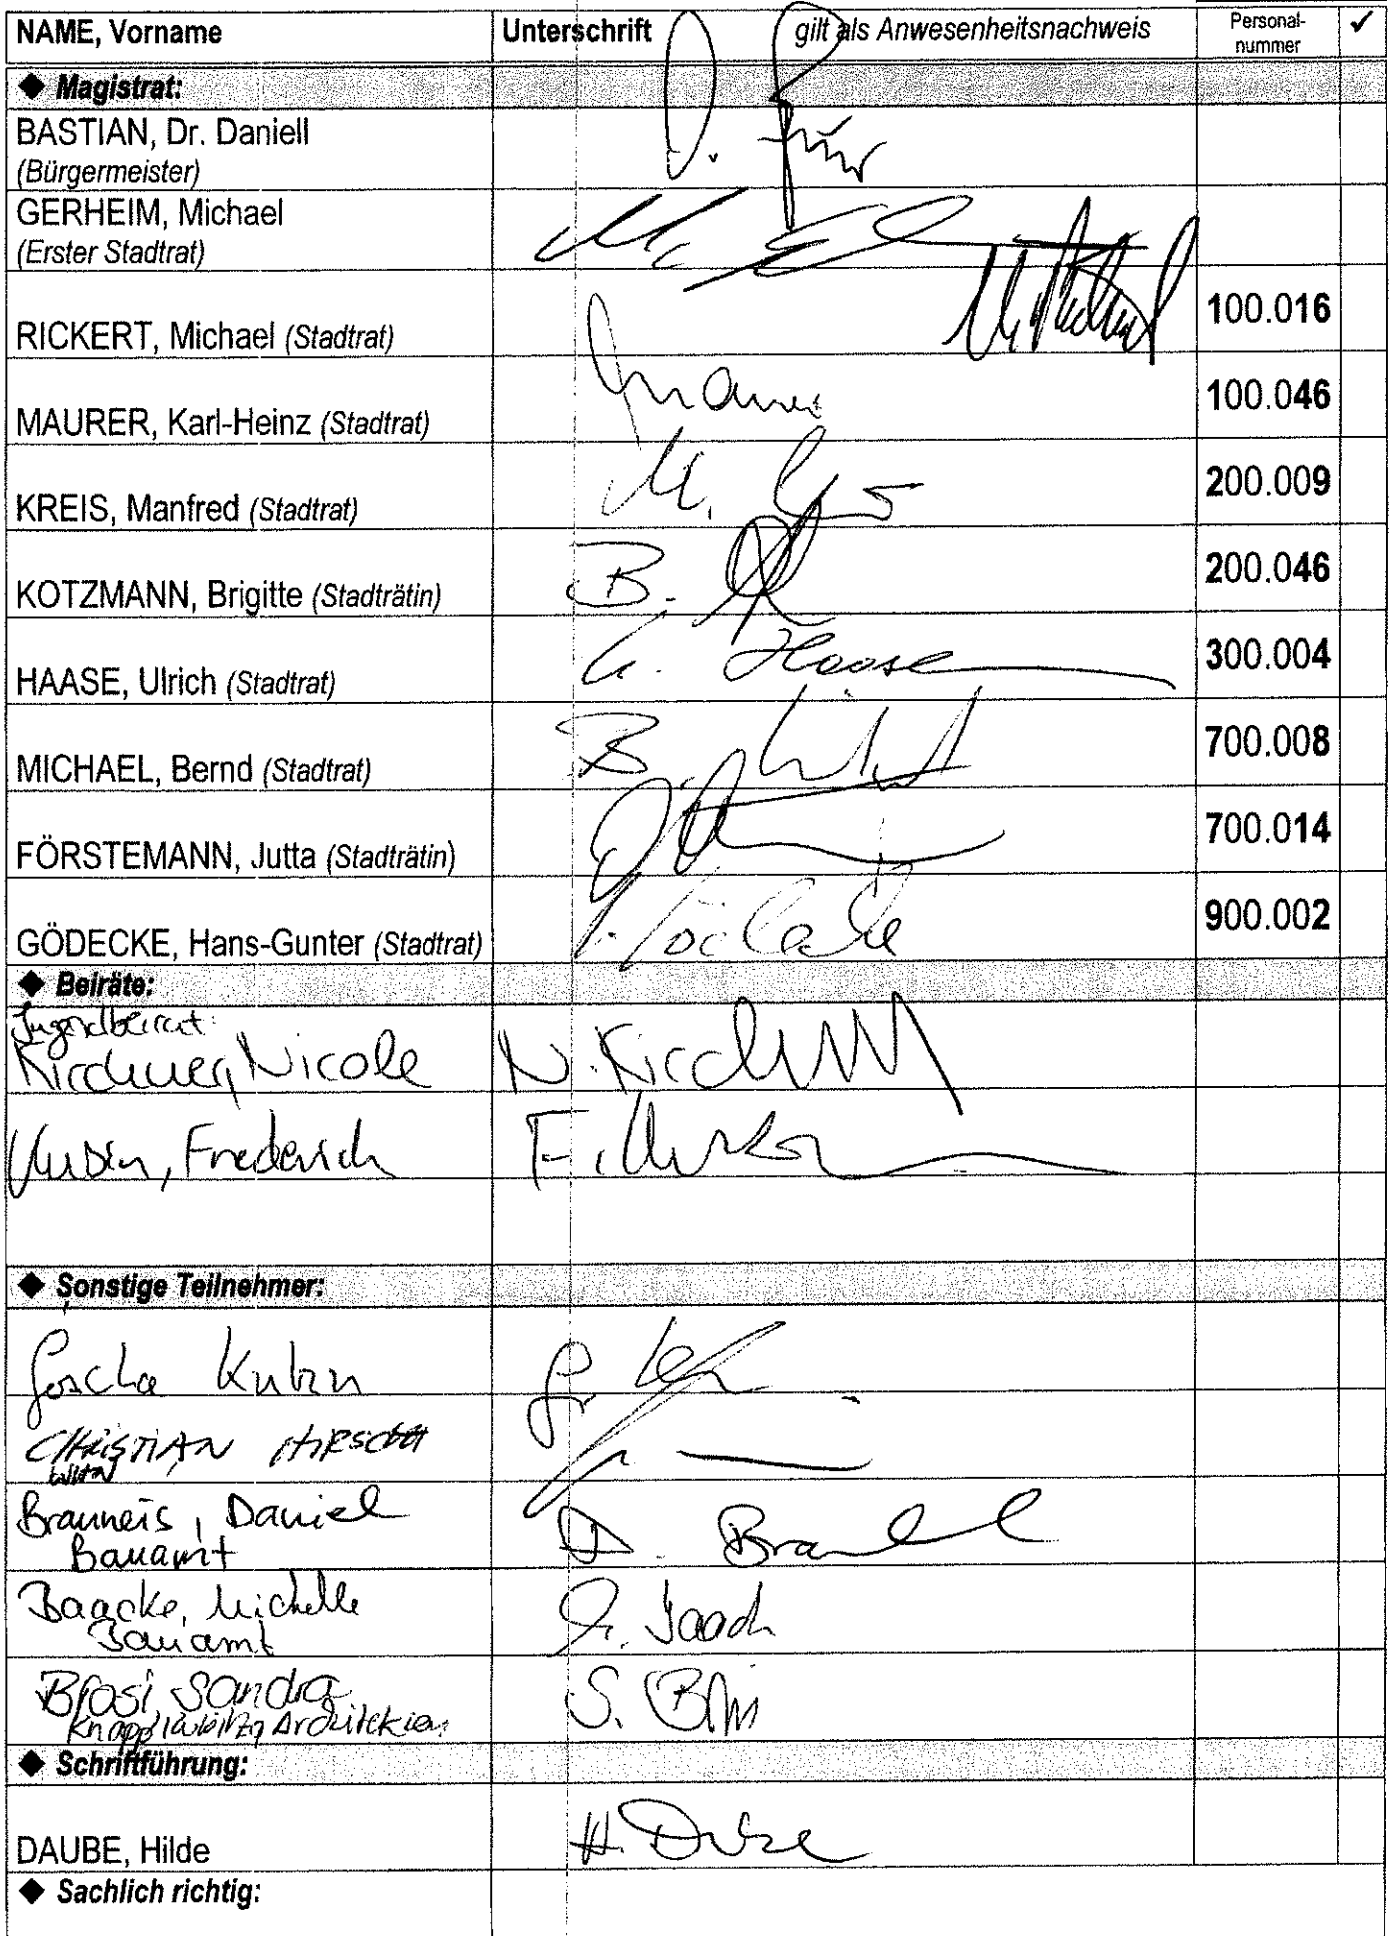 NAME, Vorname Unterschrift gilt als Anwesenheitsnachweis Personal-nummer ✓
◆ Magistrat:
BASTIAN, Dr. Daniell
(Bürgermeister)
GERHEIM, Michael
(Erster Stadtrat)
RICKERT, Michael (Stadtrat) 100.016
MAURER, Karl-Heinz (Stadtrat) 100.046
KREIS, Manfred (Stadtrat) 200.009
KOTZMANN, Brigitte (Stadträtin) B. 200.046
HAASE, Ulrich (Stadtrat) U. Haase 300.004
MICHAEL, Bernd (Stadtrat) B. 700.008
FÖRSTEMANN, Jutta (Stadträtin) 700.014
GÖDECKE, Hans-Gunter (Stadtrat) Gödecke 900.002
◆ Beiräte:
Jugendbeirat:
Kirchner, Nicole N. Kirchner
Frederich F.
◆ Sonstige Teilnehmer:
CHRISTIAN HIRSCH
Brauneis, Daniel D.
Bauamt
Baacke, Michelle
Bauamt
Brosi Sandra S.
Architekten
◆ Schriftführung:
DAUBE, Hilde H. Daube
◆ Sachlich richtig: